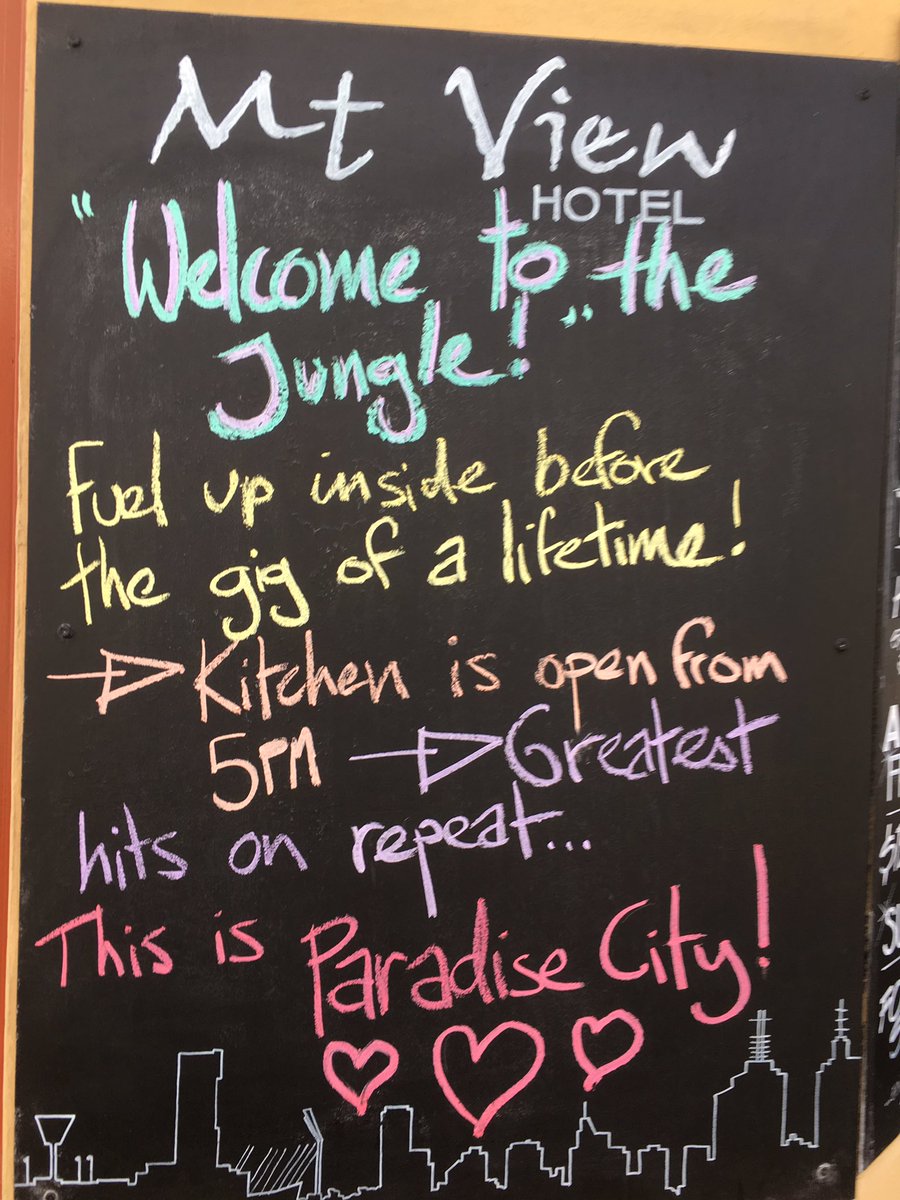 Mt View
HOTEL
"Welcome to the
Jungle!"
Fuel up inside before
the gig of a lifetime!
Kitchen is open from
5PM Greatest
hits on repeat...
This is Paradise City!